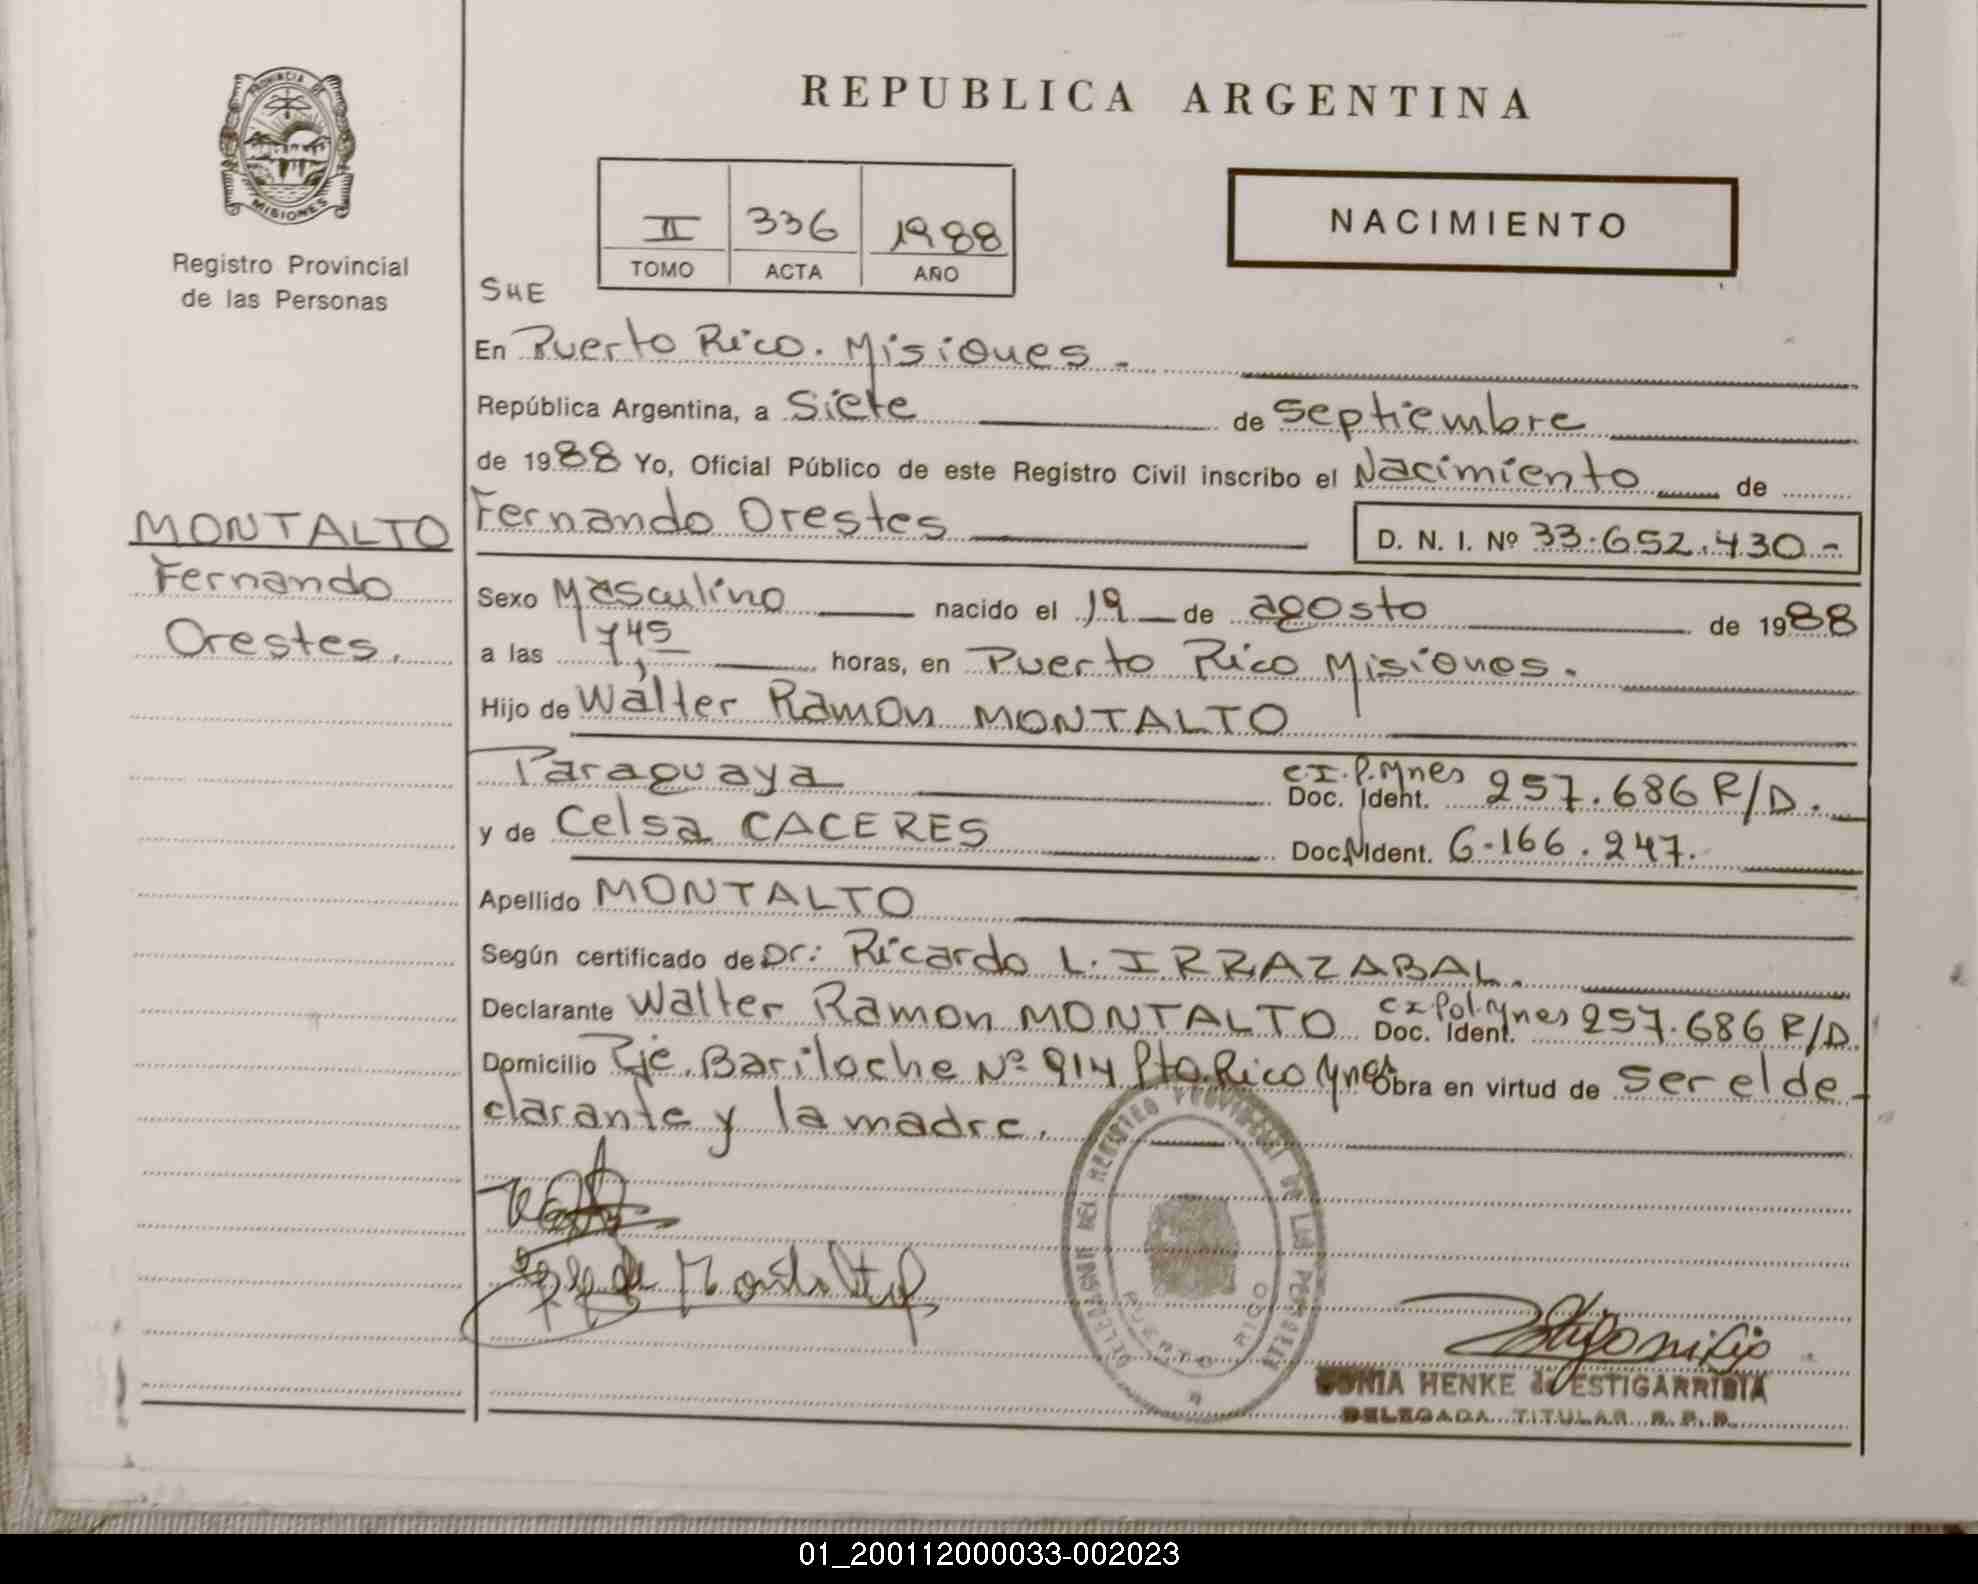 PROVINCIA DE
MISIONES
Registro Provincial
de las Personas
MONTALTO
Fernando
Orestes.
REPUBLICA ARGENTINA
II 336 1988
TOMO ACTA AÑO
NACIMIENTO
SHE
En Puerto Rico. Misiones.-
República Argentina, a Siete de Septiembre
de 1988 Yo, Oficial Público de este Registro Civil inscribo el Nacimiento de
Fernando Orestes D. N. I. Nº 33.652.430.-
Sexo Masculino nacido el 19 de agosto de 1988
a las 7,45 horas, en Puerto Rico Misiones.
Hijo de Walter Ramon MONTALTO
Paraguaya C.I.P.Mnes Doc. Ident. 257.686 R/D.
y de Celsa CACERES Doc. Ident. 6.166.247.
Apellido MONTALTO
Según certificado de Dr: Ricardo L. IRRAZABAL.
Declarante Walter Ramon MONTALTO CI Pol. Mnes Doc. Ident. 257.686 R/D.
Domicilio Pje. Bariloche Nº 914 Pto. Rico Mnes Obra en virtud de ser el de-
clarante y la madre.
DEL REGISTRO PROVINCIAL DE LAS PERSONAS
PUERTO RICO
SONIA HENKE de ESTIGARRIBIA
DELEGADA TITULAR R. P. P.
01_200112000033-002023